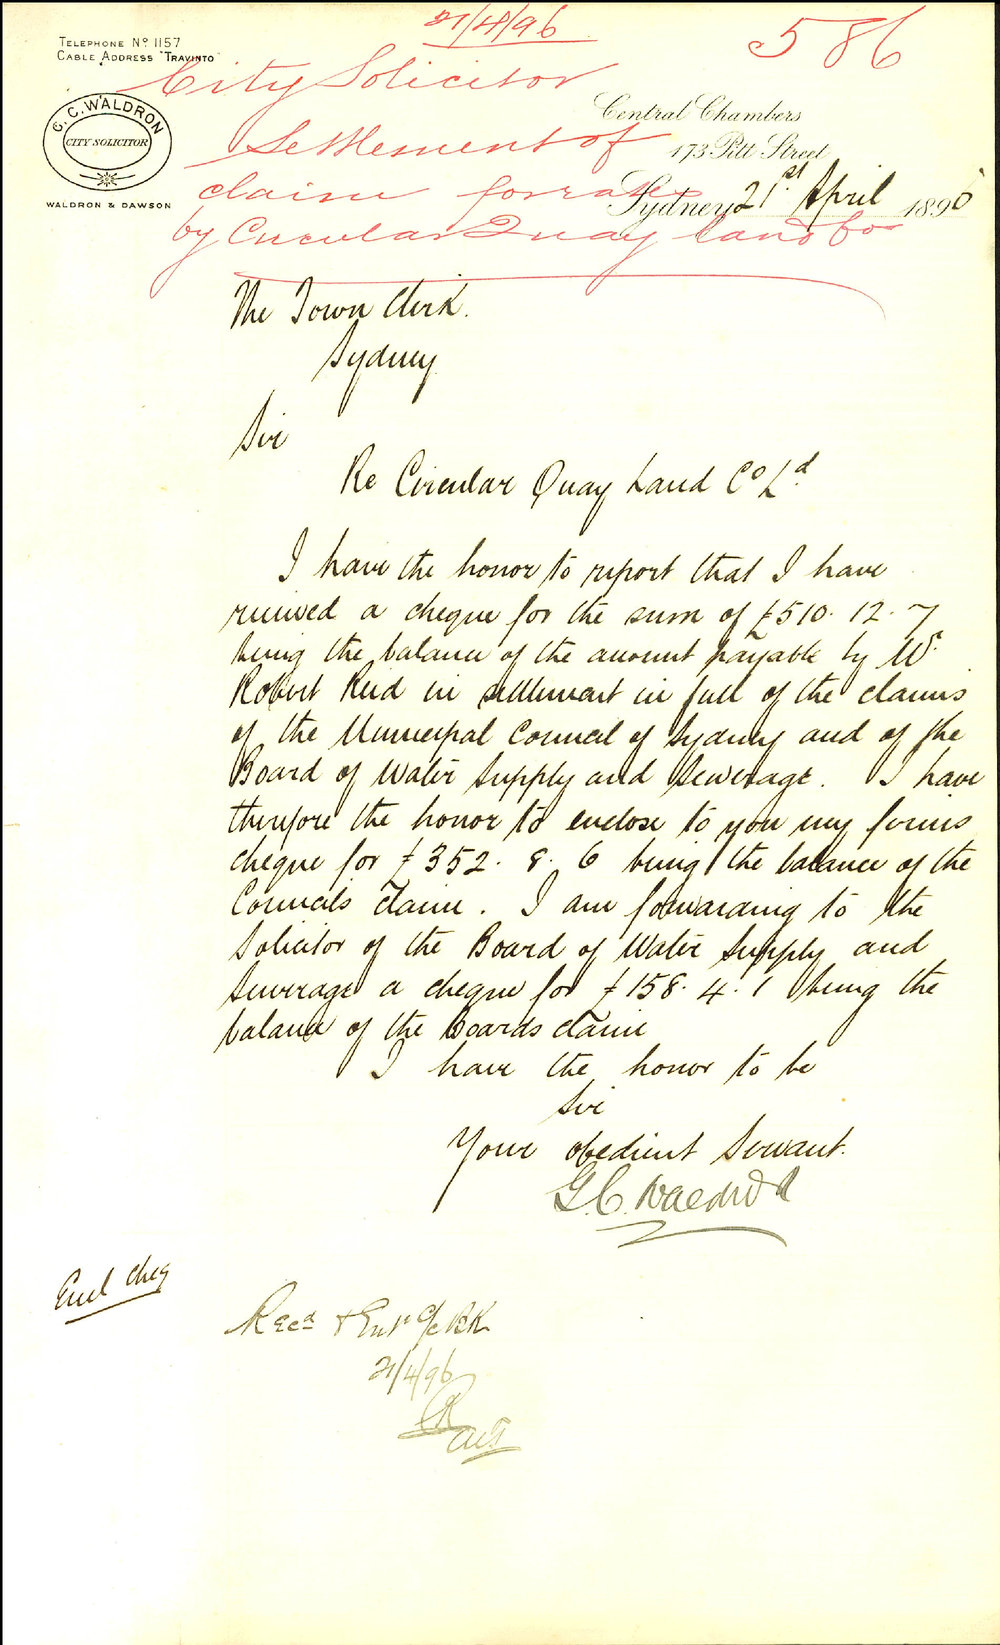 21/4/96
586
TELEPHONE No 1157
CABLE ADDRESS "TRAVINTO"
City Solicitor
Settlement of
claim for rates
by Circular Quay Land Co
G. C. WALDRON
CITY SOLICITOR
WALDRON & DAWSON
Central Chambers
173 Pitt Street
Sydney 21st April 1896
The Town Clerk.
Sydney
Sir
Re Circular Quay Land Co Ld
I have the honor to report that I have
received a cheque for the sum of £510. 12. 7
being the balance of the amount payable by Mr
Robert Reid in settlement in full of the claims
of the Municipal Council of Sydney and of the
Board of Water Supply and Sewerage. I have
therefore the honor to enclose to you my firms
cheque for £352. 8. 6 being the balance of the
Councils claim. I am forwarding to the
Solicitor of the Board of Water Supply and
Sewerage a cheque for £158. 4. 1 being the
balance of the Boards claim
I have the honor to be
Sir
Your obedient Servant.
G.C. Waldron
Encl cheq
Recd & Entd C/c BK
21/4/96